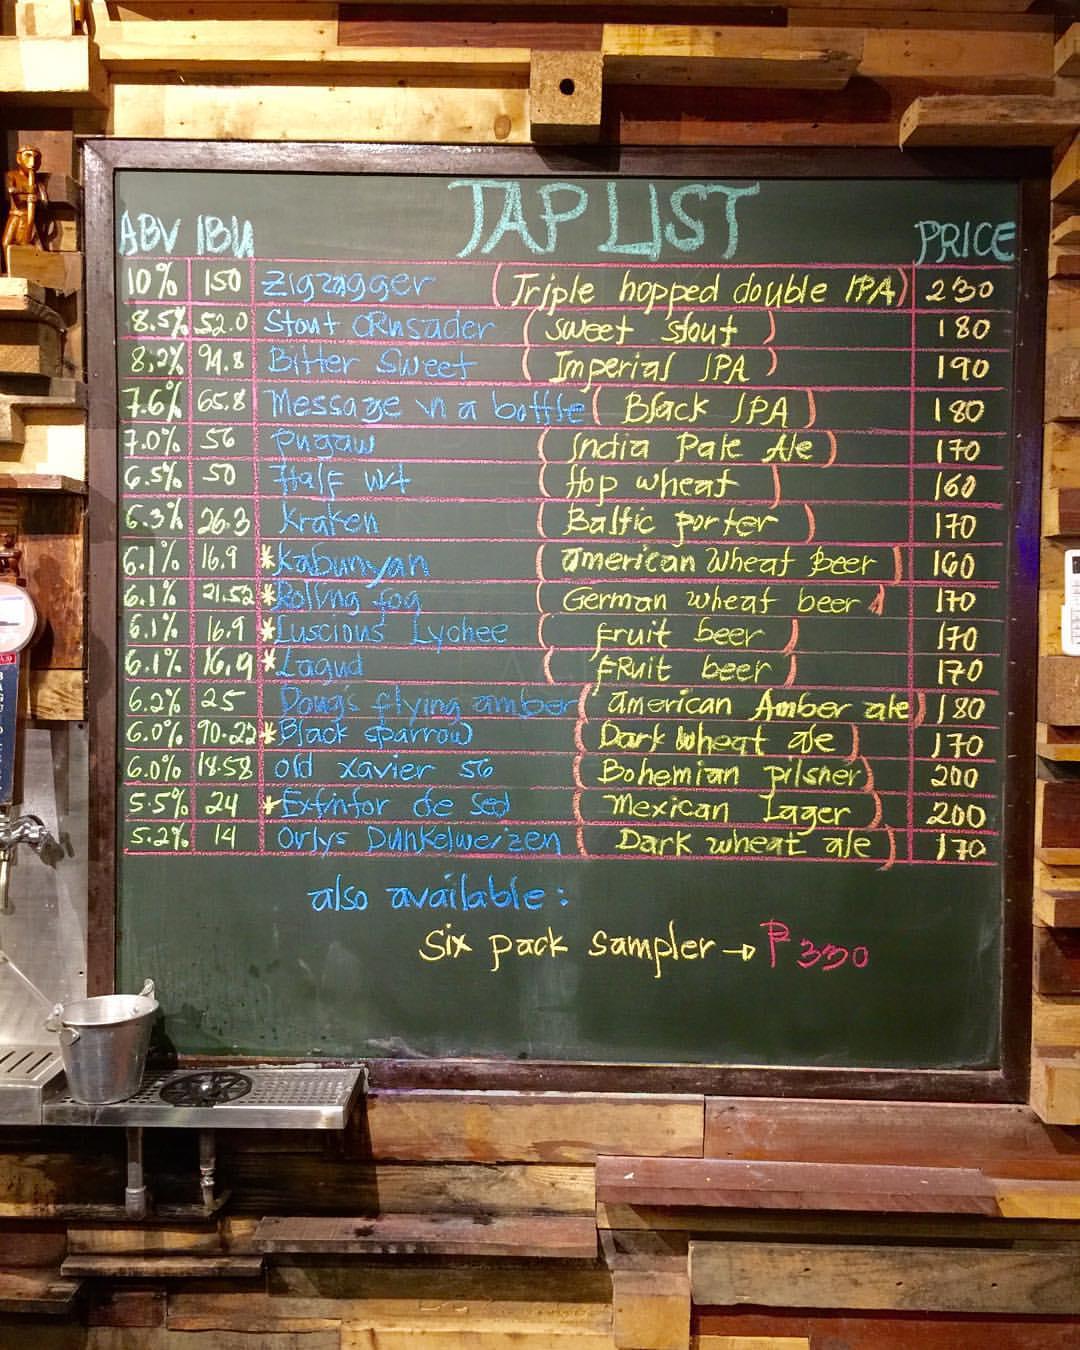 TAP LIST
ABV IBU PRICE
10% 150 Zigzagger (Triple hopped double IPA) 230
8.5% 52.0 Stout CRusader (sweet stout) 180
8.2% 94.8 Bitter Sweet (Imperial IPA) 190
7.6% 65.8 Message in a bottle (Black IPA) 180
7.0% 56 pugaw (India Pale Ale) 170
6.5% 50 Half wit (Hop wheat) 160
6.3% 26.3 Kraken (Baltic porter) 170
6.1% 16.9 *Kabunyan (american wheat Beer) 160
6.1% 21.52 *Rolling fog (German wheat beer) 170
6.1% 16.9 *Luscious Lychee (fruit beer) 170
6.1% 16.9 *Lagud (FRuit beer) 170
6.2% 25 Doug's flying amber (american Amber ale) 180
6.0% 90.22 *Black sparrow (Dark wheat ale) 170
6.0% 18.58 old xavier 56 (Bohemian pilsner) 200
5.5% 24 *Extintor de sed (Mexican Lager) 200
5.2% 14 Orlys Dunkelweizen (Dark wheat ale) 170
also available:
Six pack sampler → ₱330